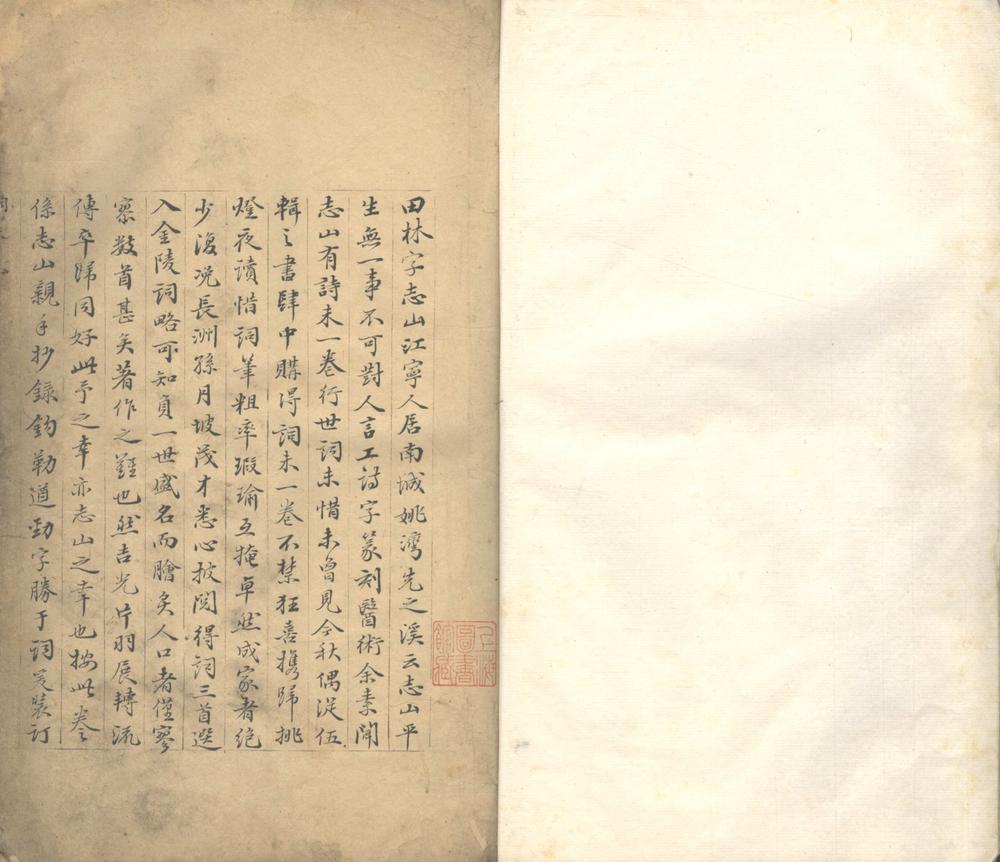 田林字志山江寧人居南城姚灣先之溪云志山平
生無一事不可對人言工詩字篆刻醫術余素聞
志山有詩耒一卷行世詞耒惜未曾見今秋偶從伍
輯之書肆中購得詞耒一卷不禁狂喜携歸挑
燈夜讀惜詞筆粗率瑕瑜互掩卓然成家者絕
少復況長洲孫月坡茂才悉心披閱得詞三首選
入金陵詞略可知負一世盛名而膾炙人口者僅寥
寥數首甚矣著作之難也然吉光片羽展轉流
傳卒歸同好此予之幸亦志山之幸也按此卷
係志山親手抄錄鈎勒遒勁字勝于詞爰裝訂
上海圖書館藏